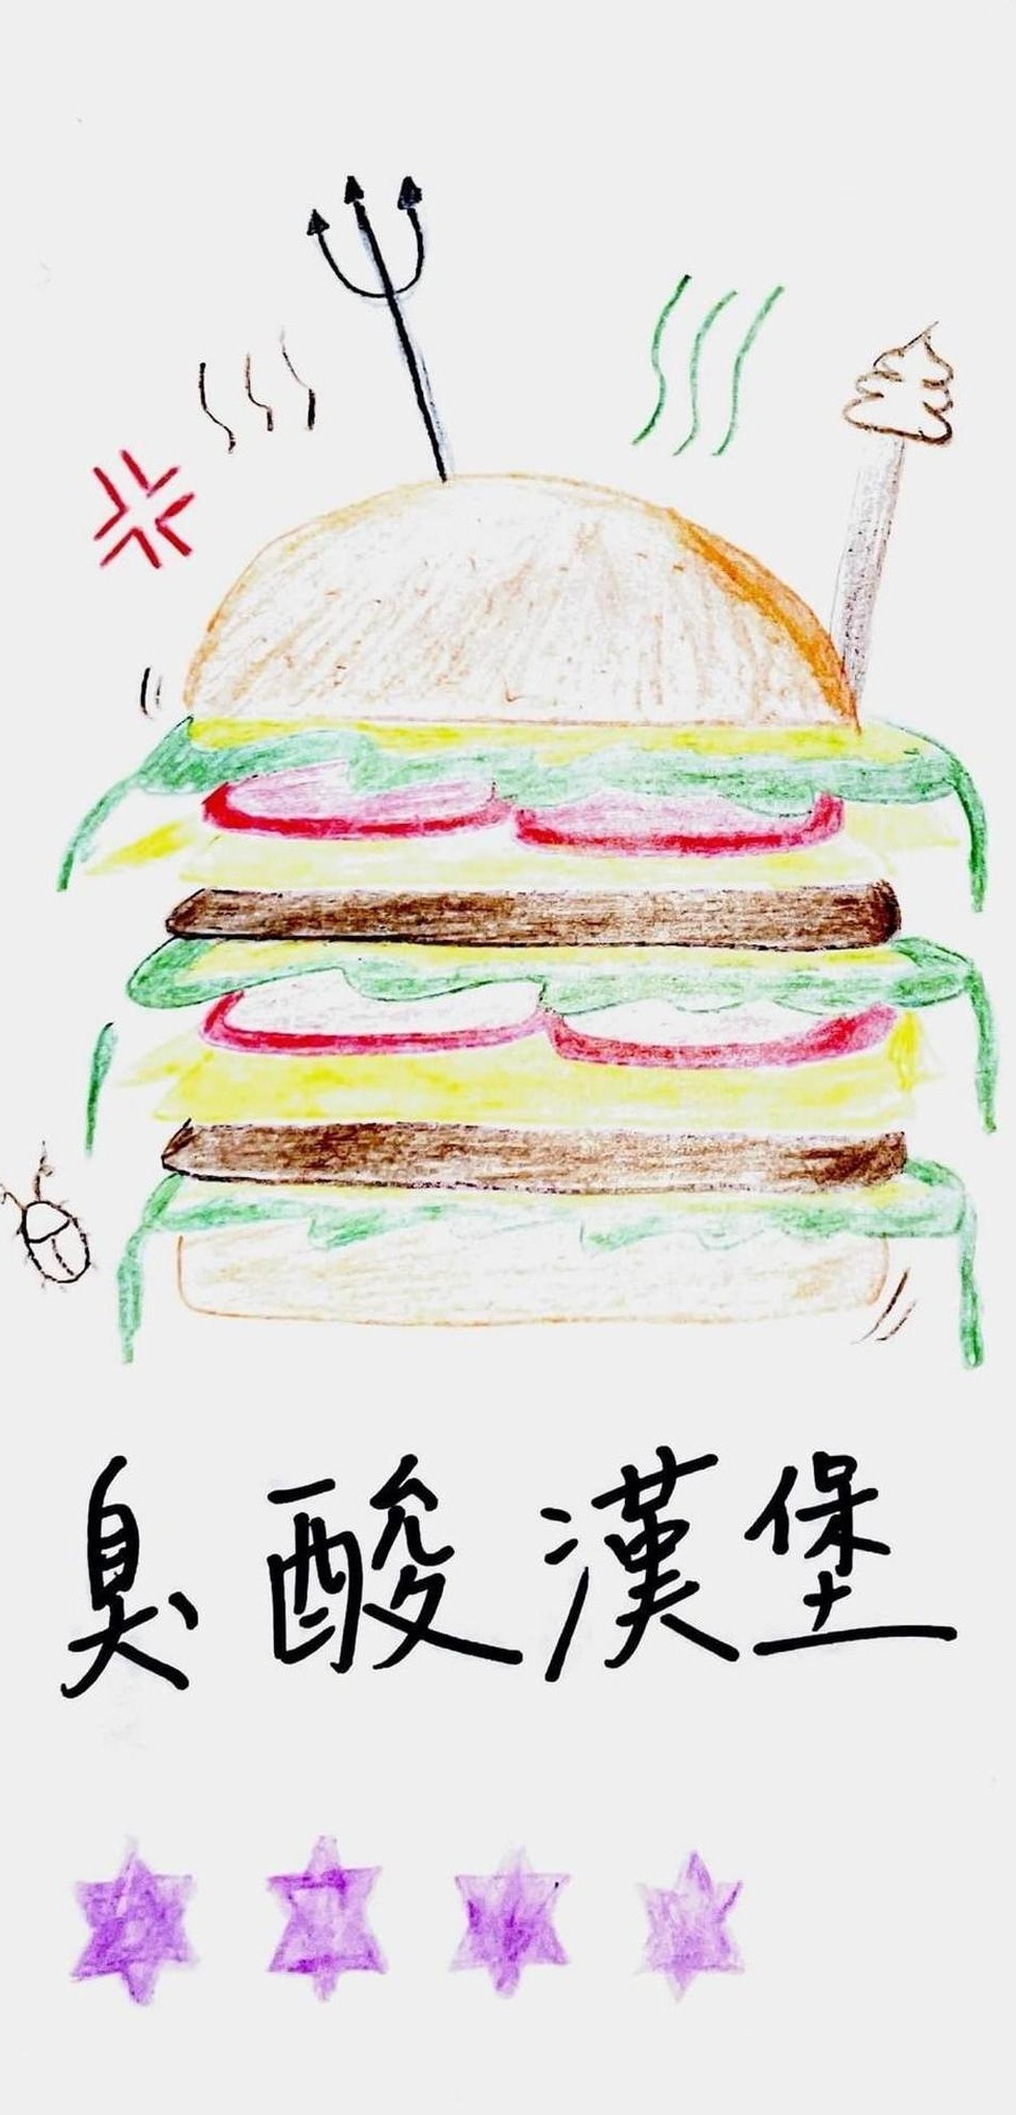 臭酸漢堡